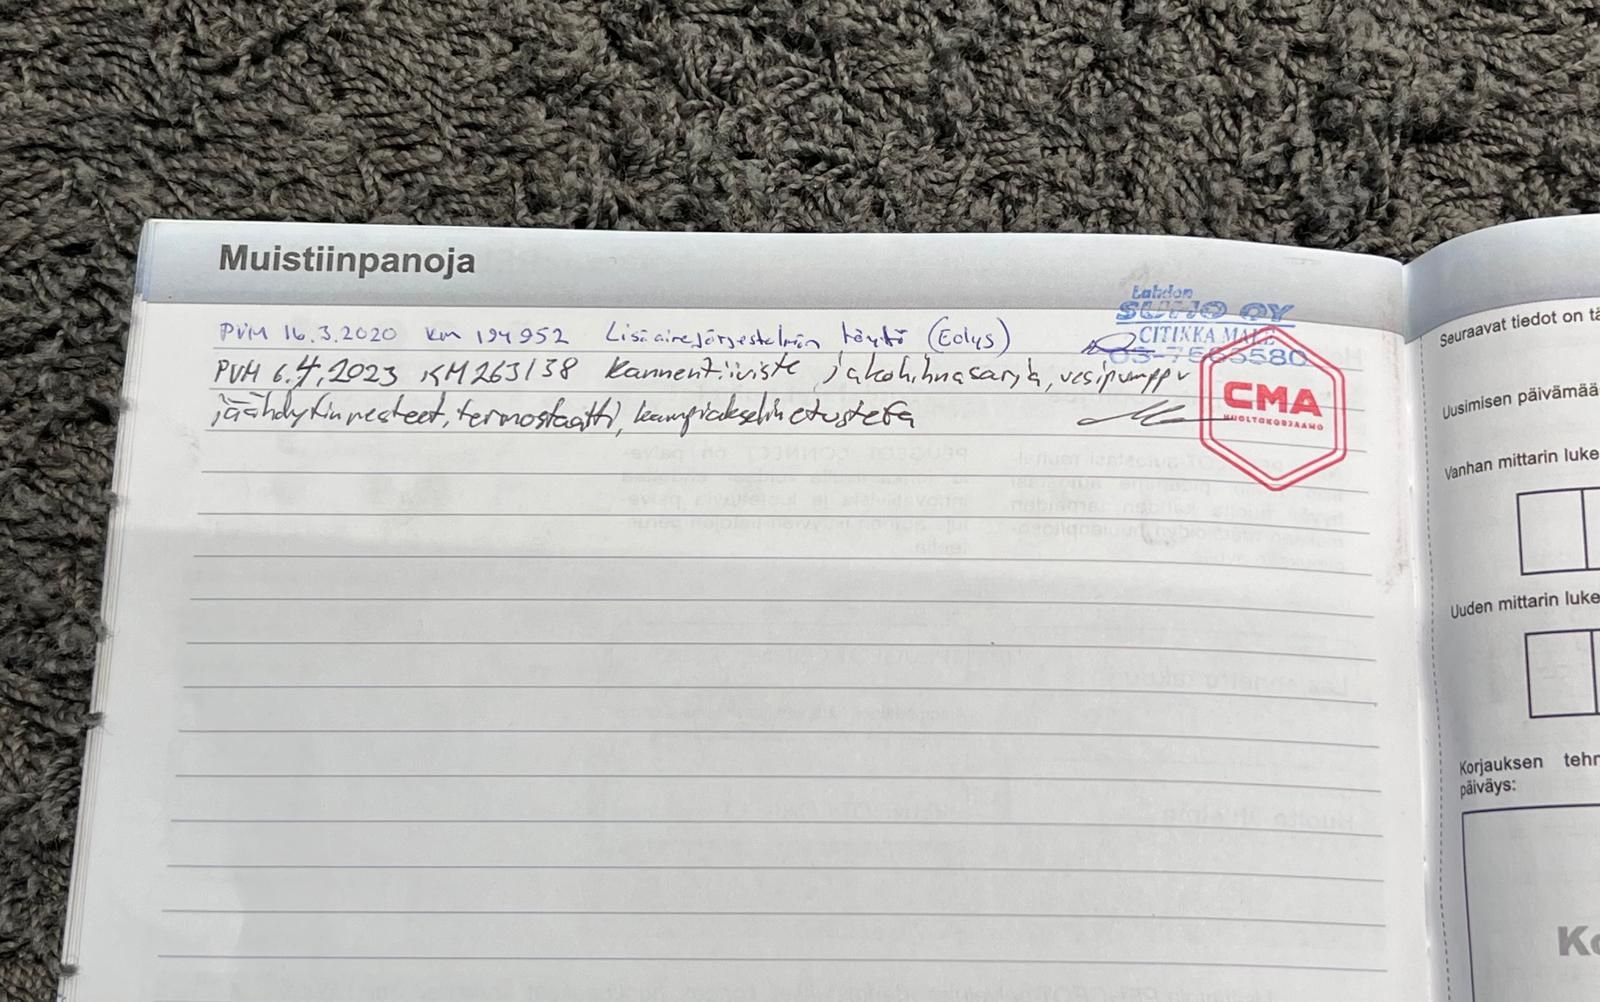 Muistiinpanoja
Lahden
SUMO OY
CITIKKA MAKE
03-7565580
PVM 16.3.2020 KM 194952 Lisäainejärjestelmän täyttö (Eolys)
PVM 6.4.2023 KM 263138 Kannentiiviste, jakohihnasarja, vesipumppu
jäähdytinnesteet, termostaatti, kampiakselin etustefa
CMA
HUOLTOKORJAAMO
Seuraavat tiedot on tä
Uusimisen päivämää
Vanhan mittarin luke
Uuden mittarin luke
Korjauksen tehn
päiväys:
Ko